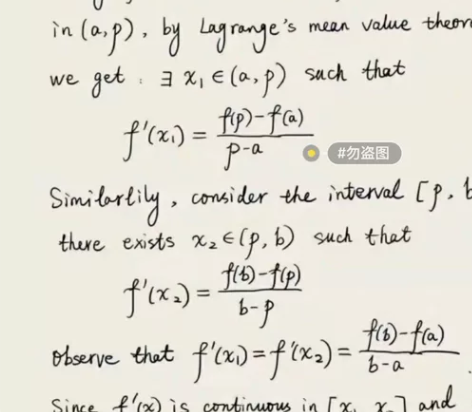 in (a,p), by Lagrange's mean value theor
we get : ∃ x₁ ∈ (a,p) such that
f'(x₁) = (f(p)-f(a))/(p-a)
#勿盗图
Similarlily, consider the interval [p, b
there exists x₂ ∈ (p, b) such that
f'(x₂) = (f(b)-f(p))/(b-p)
Observe that f'(x₁) = f'(x₂) = (f(b)-f(a))/(b-a)
Since f'(x) is continuous in [x₁, x₂] and